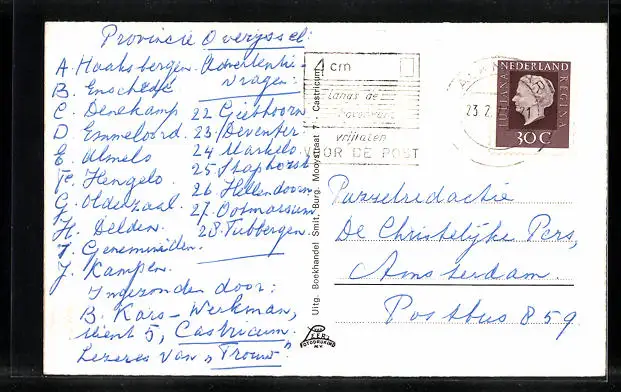 Provincie Overijssel:
A. Haaksbergen. Advertentie-
vragen:
B. Enschede
C. Denekamp
D. Emmeloord.
E. Almelo
F. Hengelo.
G. Oldenzaal.
H. Delden.
I. Genemuiden.
J. Kampen.
22 Giethoorn
23. Deventer
24 Markelo
25. Staphorst
26 Hellendoorn
27. Ootmarsum
28. Tubbergen.
Ingezonden door:
B. Kars-Werkman,
Mient 5, Castricum.
Lezeres van "Trouw".
Uitg. Boekhandel Smit, Burg. Mooystraat 7 - Castricum
4 cm
langs de
vrijlaten
VOOR DE POST
23 2
NEDERLAND
JULIANA
REGINA
30C
Puzzelredactie
De Christelijke Pers,
Amsterdam.
Postbus 859.
FOTODRUKIND
N.V.